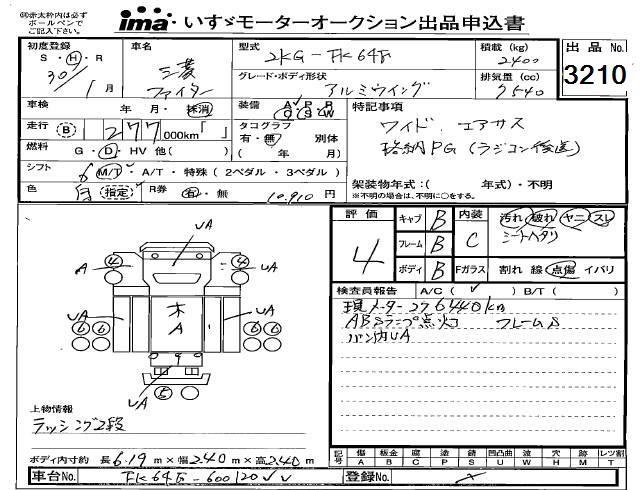 ◎赤太枠内は必ず
ボールペンで
ご記入下さい。
ima いすゞモーターオークション出品申込書
初度登録 S・H・R 30年 1月
車名 三菱 ファイター
型式 2KG-FK64F
積載 (kg) 2400
出品No. 3210
グレード・ボディ形状 アルミウイング
排気量 (cc) 7540
車検 年・月・抹消
装備 A P R C S W
特記事項
走行 B 277,000km「 」
タコグラフ 有・無 別体 ( 年 月)
ワイド エアサス
格納PG (ラジコン
燃料 G・D・HV 他( )
シフト 6 M/T・A/T・特殊 (2ペダル・3ペダル)
色 白 指定 R券 有・無 10,910円
架装物年式:( 年式)・不明
※不明の場合は、不明に○をする。
評価 4
キャブ B
フレーム B
ボディ B
内装 C
汚れ 破れ ヤニ スレ
シートヘタリ
Fガラス 割れ 線 点傷 イバリ
検査員報告 A/C( ) B/T( )
現メーター276440km
ABSランプ点灯 フレームS
バン内UA
UA
A
4
4
UA
木
A
UA
UA
6 6
6 6
UA
UA
6
上物情報
ラッシング2段
ボディ内寸約 長6.19m×幅2.40m×高2.40m
記号 傷A 板金B 腐C 塗P 錆S 凹凸曲U 欠W 穴H 跡M レツ割T
車台No. FK64F-600120
登録No.